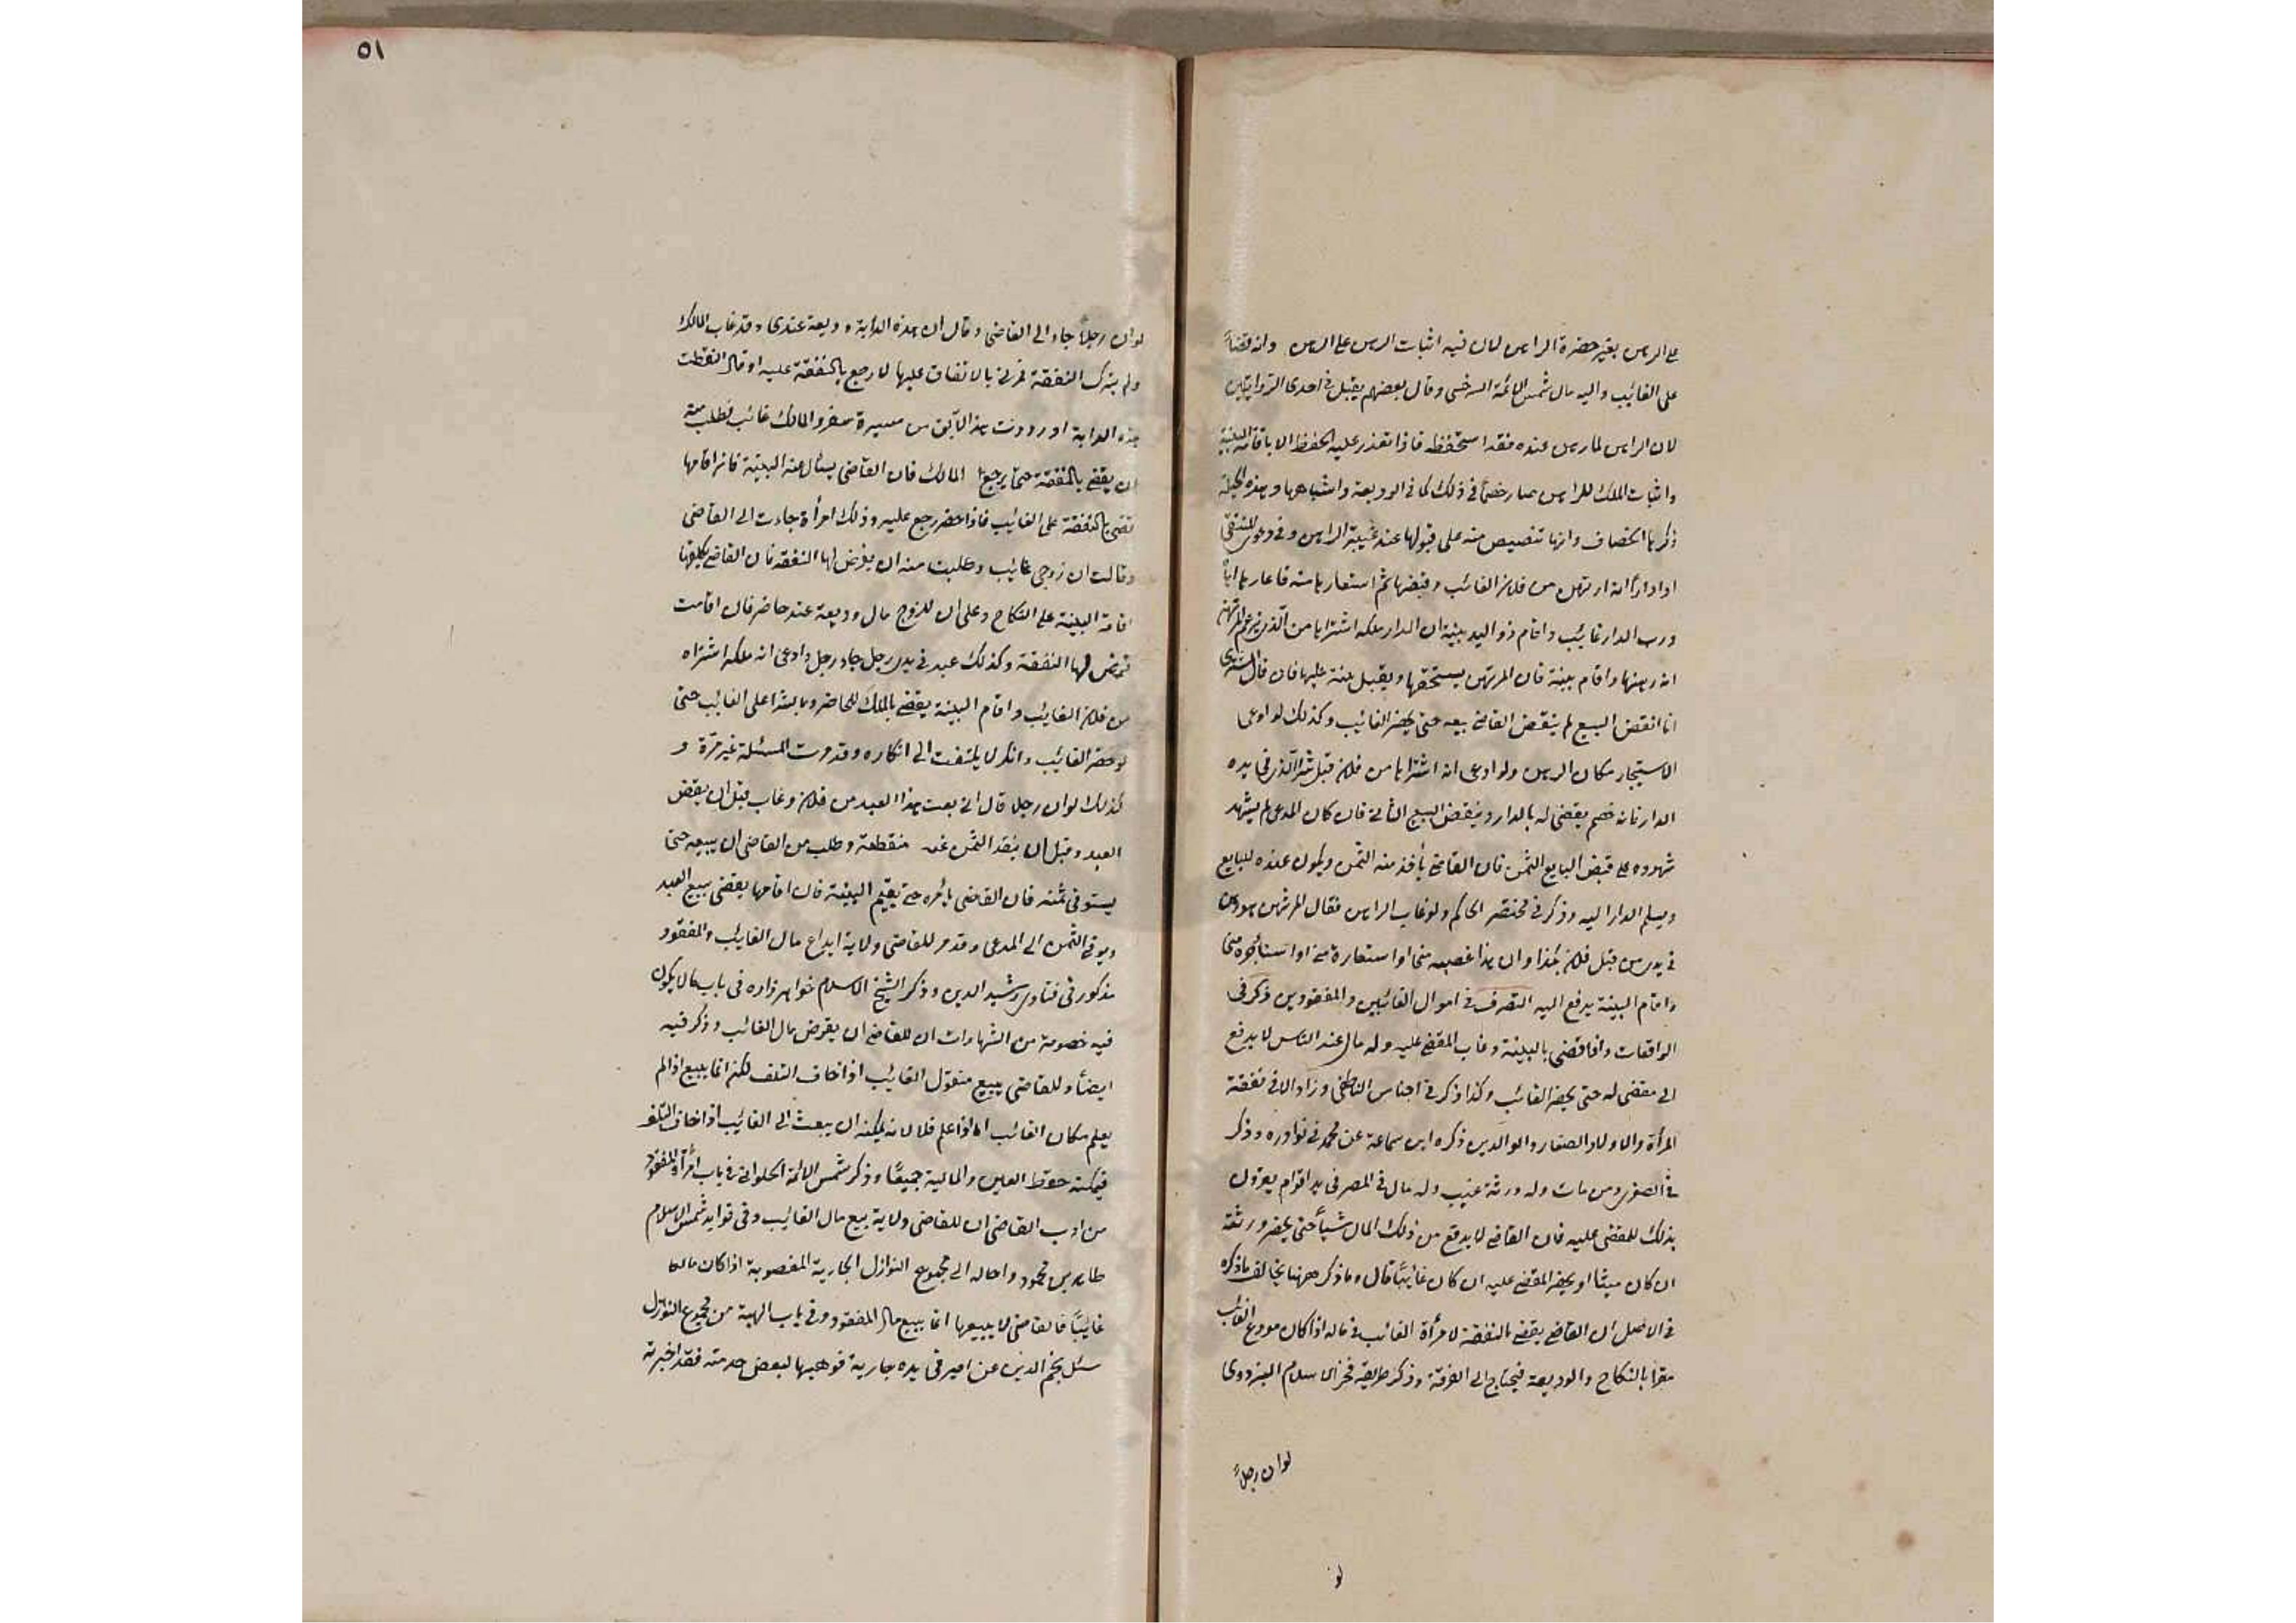 على الرهن بغير حضرة الراهن لان فيه اثبات الرهن على الراهن وانه قضاءً
على الغائب واليه مال شمس الائمة السرخسى وقال بعضهم يقبل فى احدى الروايتين
لان الراهن لما رهن عنده فقد استحفظه فاذا تعذر عليه الحفظ الا باقامة البينة
واثبات الملك للراهن صار خصماً فى ذلك كما فى الوديعة واشباهها وهذه الحيلة
ذكرها الخصاف وانها تنصيص منه على قبولها عند غيبة الراهن وفى دعوى المنتقى
اذا ادار انه ارتهن من فلان الغائب وقبضها ثم استعارها منه فاعارها اياه
ورب الدار غائب واقام ذو اليد بينة ان الدار ملكه اشتراها من الذى يزعم المرتهن
انه رهنها واقام بينة فان المرتهن يستحقها ويقبل بينته عليها فان قال المشترى
انا انقض البيع لم ينقض القاضى بيعه حتى يحضر الغائب وكذلك لو ادعى
الاستيجار مكان الرهن ولو ادعى انه اشتراها من فلان قبل شرا الذى فى يده
الدار فانه خصم يقضى له بالدار وينقض البيع الثانى فان كان المدعى لم يشهد
شهوده على قبض البايع الثمن فان القاضى يأخذ منه الثمن ويكون عنده للبايع
ويسلم الدار اليه وذكر فى مختصر الحاكم ولو غاب الراهن فقال المرتهن هو رهن
فى يدى من قبل فلان بكذا وان هذا غصبه منى او استعاره منى او استأجره منى
واقام البينة يدفع اليه التصرف فى اموال الغائبين والمفقودين ذكر فى
الواقعات واذا قضى بالبينة وغاب المقضى عليه وله مال عند الناس لا يدفع
الى مقضى له حتى يحضر الغائب وكذا ذكر فى اجناس الناطفى وزاد الا فى نفقة
المرأة والاولاد الصغار والوالدين ذكره ابن سماعة عن محمد فى نوادره وذكر
فى الصغرى ومن مات وله ورثة غيب وله مال فى المصر فى يد اقوام يعرفون
بذلك للمقضى عليه فان القاضى لا يدفع من ذلك المال شيأً حتى يحضر ورثته
ان كان ميتا او يحضر المقضى عليه ان كان غائباً قال وما ذكر ههنا يخالف ما ذكره
فى الاصل ان القاضى يقضى بالنفقة لامرأة الغائب فى ماله اذا كان مودع الغائب
مقرا بالنكاح والوديعة فيحتاج الى الفرقة وذكر طريقه فخر الاسلام البزدوى
لو ان رجلاً
لو
٥١
لو ان رجلاً جاء الى القاضى وقال ان هذه الدابة وديعة عندى وقد غاب المالك
ولم يترك النفقة فمرنى بالانفاق عليها لا رجع بالنفقة عليه او قال التقطت
هذه الدابة او رددت هذا الآبق من مسيرة سفر والمالك غائب فطلب منه
ان يقضى بالنفقة حتى يرجع المالك فان القاضى يسأل عنه البينة فان اقامها
قضى بالنفقة على الغائب فاذا حضر رجع عليه وذلك امرأة جاءت الى القاضى
وقالت ان زوجى غائب وطلبت منه ان يفرض لها النفقة فان القاضى يكلفها
اقامة البينة على النكاح وعلى ان للزوج مال وديعة عند حاضر فان اقامت
فرض لها النفقة وكذلك عبد فى يد رجل جاء رجل وادعى انه ملكه اشتراه
من فلان الغائب واقام البينة يقضى بالملك للحاضر وبالشرا على الغائب حتى
لو حضر الغائب وانكر لا يلتفت الى انكاره وقد مرت المسئلة غير مرّة و
كذلك لو ان رجلا قال انى بعت هذا العبد من فلان وغاب قبل ان يقبض
العبد وقبل ان ينقد الثمن منقطعة وطلب من القاضى ان يبيعه حتى
يستوفى ثمنه فان القاضى يأمره حتى يقيم البينة فان اقامها يقضى ببيع العبد
ويوفى الثمن الى المدعى وقد مر للقاضى ولاية ايداع مال الغائب والمفقود
مذكور فى فتاوى رشيد الدين وذكر الشيخ الاسلام خواهر زاده فى باب ما لا يكون
فيه خصومة من الشهادات ان للقاضى ان يقرض مال الغائب وذكر فيه
ايضاً وللقاضى يبيع منقول الغائب اذا خاف التلف لكن انما يبيع اذا لم
يعلم مكان الغائب اما اذا علم فلا لانه يمكنه ان يبعث الى الغائب اذا خاف التلف
فيمكنه حفظ العين والمالية جميعاً وذكر شمس الائمة الحلوانى فى باب امرأة المفقود
من ادب القاضى ان للقاضى ولاية بيع مال الغائب وفى فوايد شمس الاسلام
طاهر بن محمود واحاله الى مجموع النوازل الجارية المغصوبة اذا كان مالكها
غائباً فالقاضى لا يبيعها انما يبيع مال المفقود وفى باب الهبة من مجموع النوازل
سئل نجم الدين عن امير فى يده جارية فوهبها لبعض خدمته فقد اخبرته